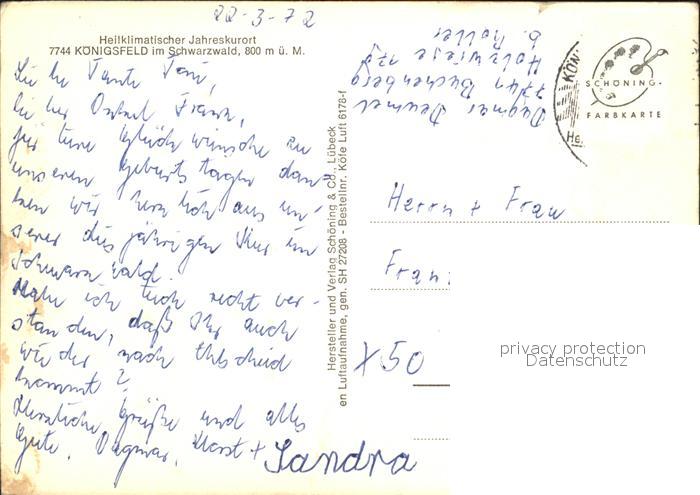 22-3-72
Heilklimatischer Jahreskurort
7744 KÖNIGSFELD im Schwarzwald, 800 m ü. M.
Liebe Tante Toni,
lieber Onkel Frank,
für eure Glückwünsche zu
unseren Geburtstagen dan-
ken wir herzlich aus un-
serer diesjährigen Kur im
Schwarzwald.
Habe ich Euch recht ver-
standen, daß Ihr auch
wieder nach
kommt?
Herzliche Grüße und alles
Gute, Dagmar, Horst +
Sandra
Hersteller und Verlag Schöning & Co., Lübeck
en Luftaufnahme, gen. SH 27208 - Bestellnr. Köfe Luft 6178-f
Dagmar Deumel
7741 Buchenberg
Holzwiese 17g
b. Holler
KÖN
He
SCHÖNING-
FARBKARTE
Herrn + Frau
Fran
X50
privacy protection
Datenschutz